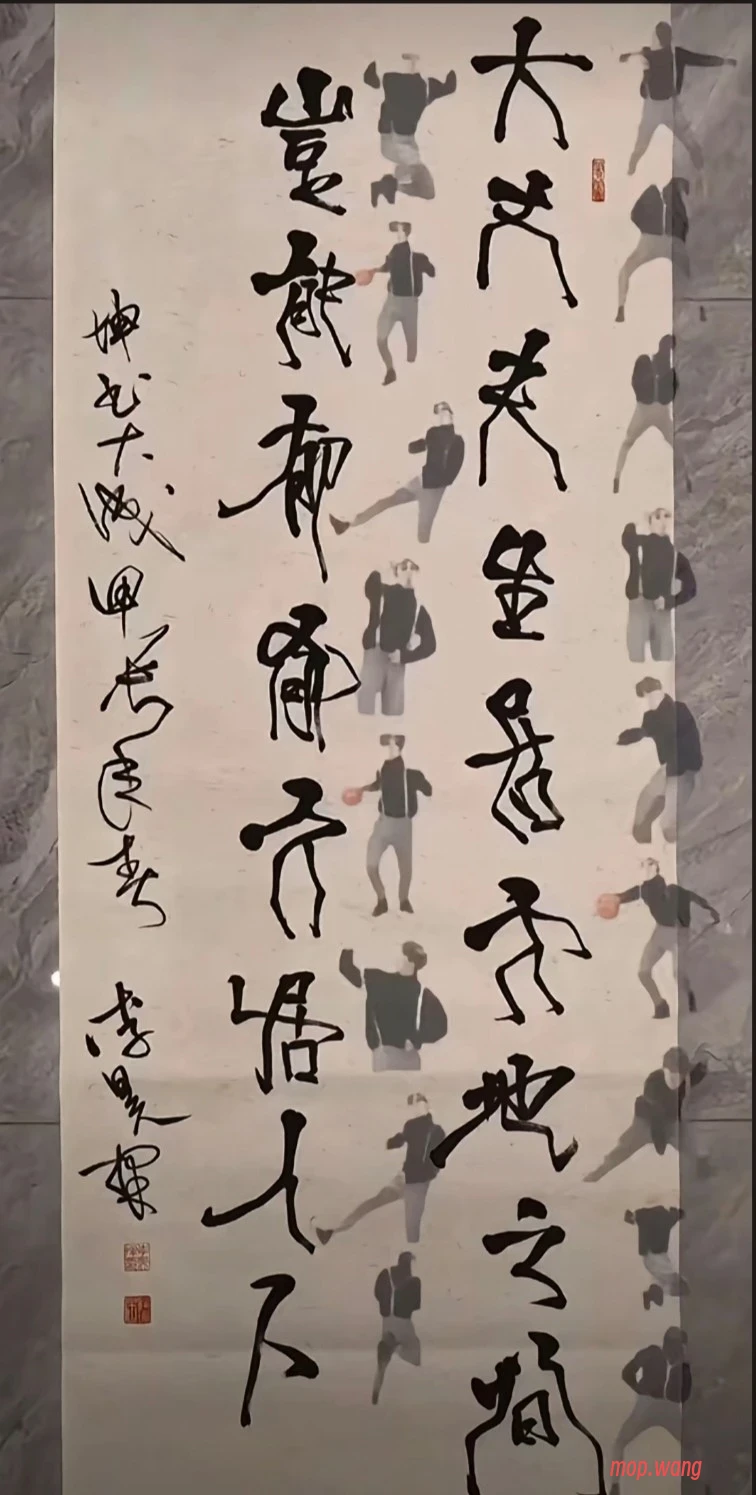 大丈夫生居天地之間
豈能郁郁久居人下
坤书大成甲辰年春 李昊
mop.wang